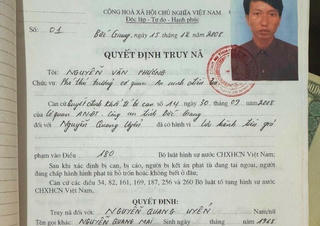 CỘNG HOÀ XÃ HỘI CHỦ NGHĨA VIỆT NAM
Độc lập - Tự do - Hạnh phúc
Số: 01
Bắc Giang, ngày 15 tháng 12 năm 2008
QUYẾT ĐỊNH TRUY NÃ
Tôi: NGUYỄN VĂN PHƯƠNG
Chức vụ: Phó Thủ trưởng cơ quan An ninh điều tra
Căn cứ Quyết định khởi tố bị can số 14 ngày 30 tháng 07 năm 2008
của Cơ quan ANĐT Công an tỉnh Bắc Giang
đối với Nguyễn Quang Uyển đã có hành vi Lưu hành tiền giả
phạm vào Điều 180 Bộ luật hình sự nước CHXHCN Việt Nam;
Sau khi xác định bị can, bị cáo, người bị kết án phạt tù đang tại ngoại, người đang
chấp hành hình phạt tù bỏ trốn hoặc không biết ở đâu;
Căn cứ các điều 34, 82, 161, 169, 187, 256 và 260 Bộ luật tố tụng hình sự nước
CHXHCN Việt Nam,
QUYẾT ĐỊNH:
Truy nã đối với: NGUYỄN QUANG UYỂN Nam/nữ
Tên gọi khác: NGUYỄN QUANG MAI Sinh ngày tháng năm